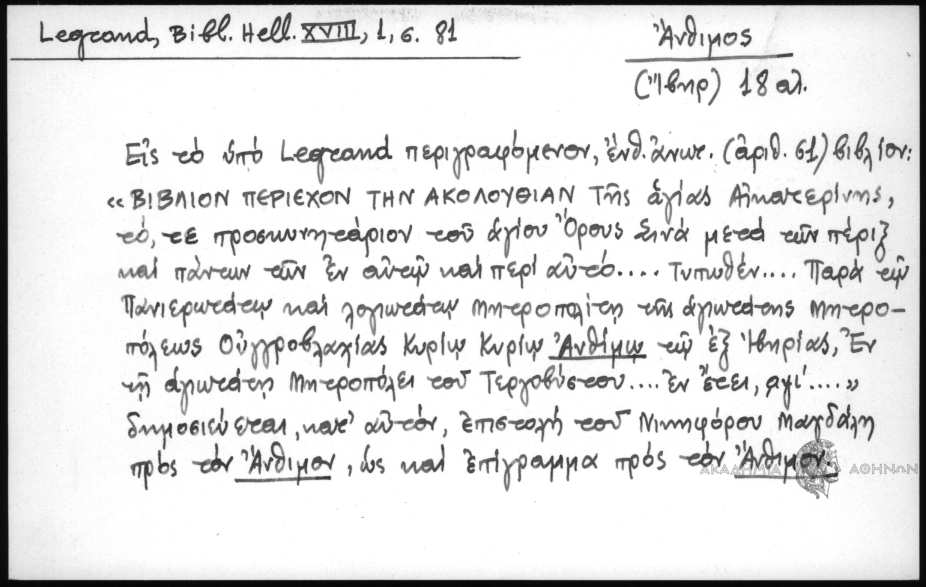 Legrand, Bibl. Hell. XVIII, 1, σ. 81
Ἄνθιμος
(Ἴβηρ) 18 αι.
Εἰς τό ὑπό Legrand περιγραφόμενον, ἔνθ. ἄνωτ. (ἀριθ. 61) βιβλίον:
«ΒΙΒΛΙΟΝ ΠΕΡΙΕΧΟΝ ΤΗΝ ΑΚΟΛΟΥΘΙΑΝ Τῆς ἁγίας Αἰκατερίνης,
τό, τε προσκυνητάριον τοῦ ἁγίου Ὄρους Σινᾶ μετά τῶν πέριξ
καί πάντων τῶν ἐν αὐτῷ καί περί αὐτό.... Τυπωθέν.... Παρά τῷ
Πανιερωτάτῳ καί λογιωτάτῳ Μητροπολίτῃ τῆς ἁγιωτάτης Μητρο-
πόλεως Οὐγγροβλαχίας Κυρίῳ Κυρίῳ Ἀνθίμῳ τῷ ἐξ Ἰβηρίας, Ἐν
τῇ ἁγιωτάτῃ Μητροπόλει τοῦ Τεργοβύστου.... ἐν ἔτει, αψι΄....»
δημοσιεύεται, κατ' αὐτόν, ἐπιστολή τοῦ Νικηφόρου Μαγδάλη
πρός τόν Ἄνθιμον, ὡς καί ἐπίγραμμα πρός τόν Ἄνθιμον.
ΑΚΑΔΗΜΙΑ ΑΘΗΝΩΝ